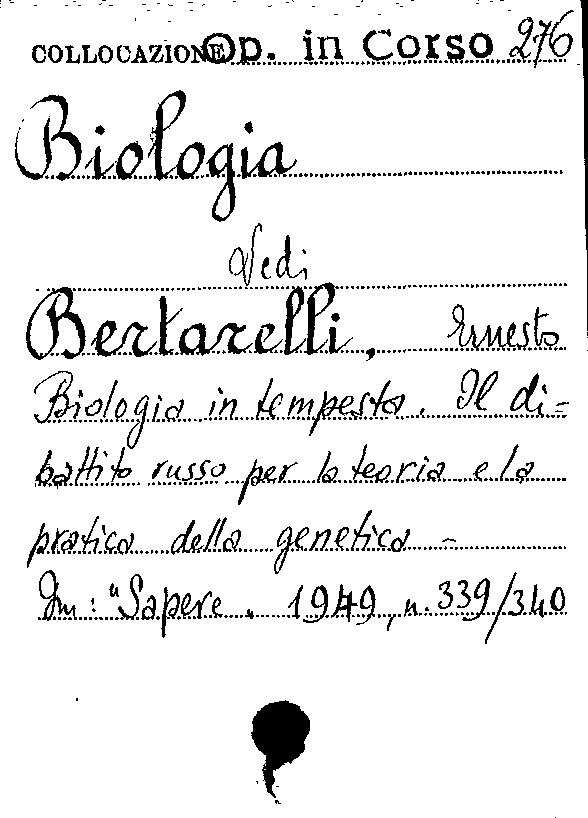 COLLOCAZIONE Op. in Corso 276
Biologia
Vedi
Bertarelli, Ernesto
Biologia in tempesta. Il di=
battito russo per la teoria e la
pratica della genetica -
Im: "Sapere„ 1949, n. 339/340